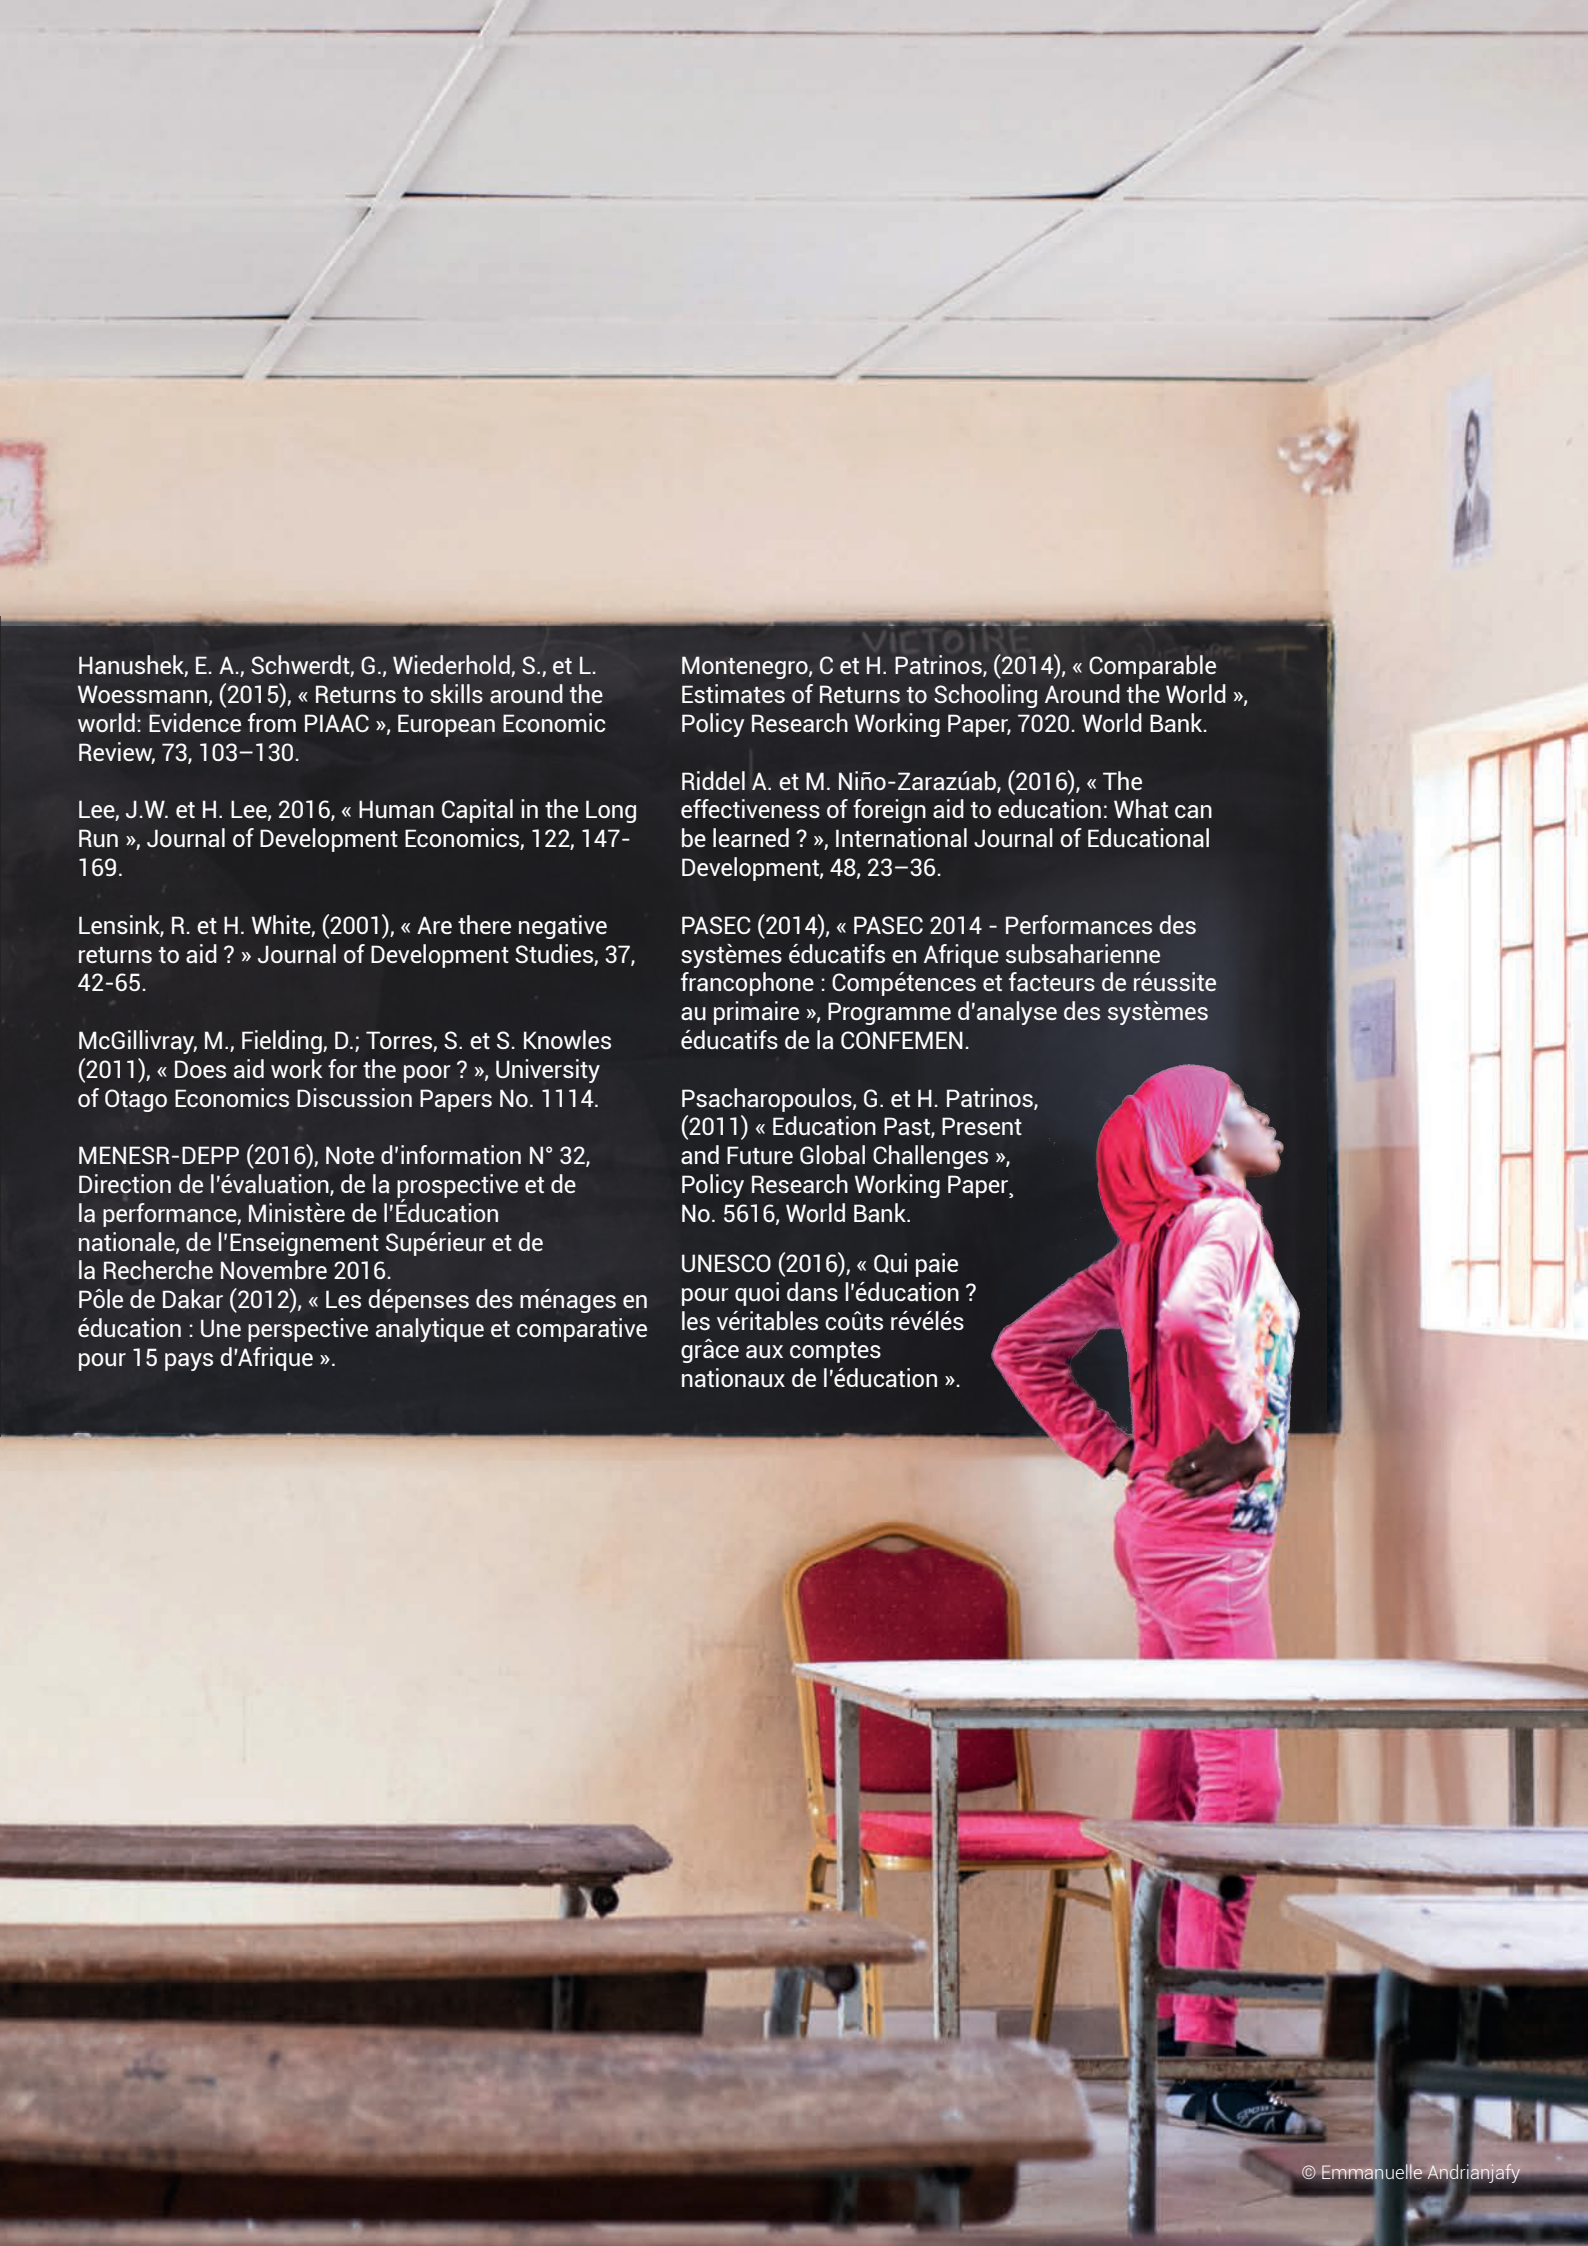 VICTOIRE
Hanushek, E. A., Schwerdt, G., Wiederhold, S., et L.
Woessmann, (2015), « Returns to skills around the
world: Evidence from PIAAC », European Economic
Review, 73, 103–130.
Lee, J.W. et H. Lee, 2016, « Human Capital in the Long
Run », Journal of Development Economics, 122, 147-
169.
Lensink, R. et H. White, (2001), « Are there negative
returns to aid ? » Journal of Development Studies, 37,
42-65.
McGillivray, M., Fielding, D.; Torres, S. et S. Knowles
(2011), « Does aid work for the poor ? », University
of Otago Economics Discussion Papers No. 1114.
MENESR-DEPP (2016), Note d'information N° 32,
Direction de l'évaluation, de la prospective et de
la performance, Ministère de l'Éducation
nationale, de l'Enseignement Supérieur et de
la Recherche Novembre 2016.
Pôle de Dakar (2012), « Les dépenses des ménages en
éducation : Une perspective analytique et comparative
pour 15 pays d'Afrique ».
Montenegro, C et H. Patrinos, (2014), « Comparable
Estimates of Returns to Schooling Around the World »,
Policy Research Working Paper, 7020. World Bank.
Riddel A. et M. Niño-Zarazúab, (2016), « The
effectiveness of foreign aid to education: What can
be learned ? », International Journal of Educational
Development, 48, 23–36.
PASEC (2014), « PASEC 2014 - Performances des
systèmes éducatifs en Afrique subsaharienne
francophone : Compétences et facteurs de réussite
au primaire », Programme d'analyse des systèmes
éducatifs de la CONFEMEN.
Psacharopoulos, G. et H. Patrinos,
(2011) « Education Past, Present
and Future Global Challenges »,
Policy Research Working Paper¸
No. 5616, World Bank.
UNESCO (2016), « Qui paie
pour quoi dans l'éducation ?
les véritables coûts révélés
grâce aux comptes
nationaux de l'éducation ».
© Emmanuelle Andrianjafy